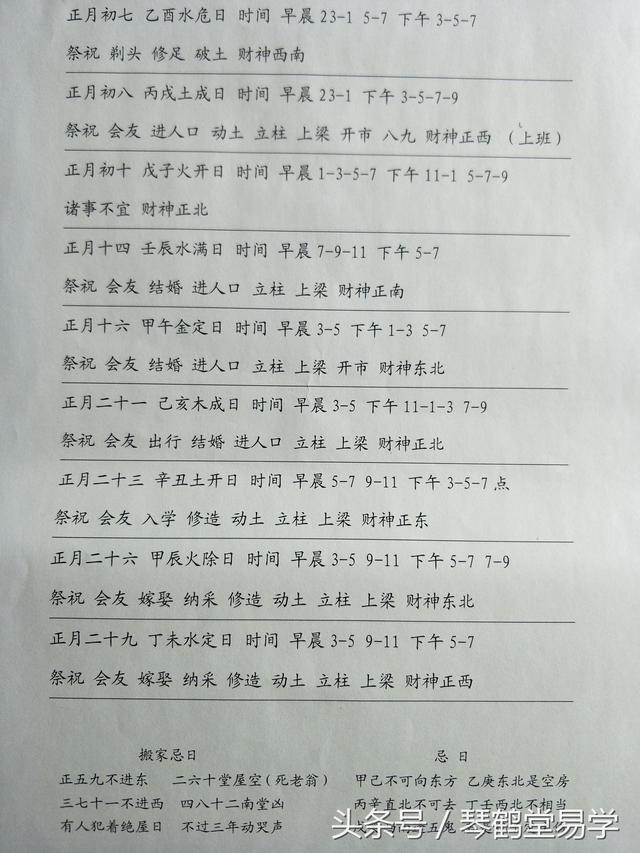 正月初七 乙酉水危日 时间 早晨23-1 5-7 下午3-5-7
祭祝 剃头 修足 破土 财神西南
正月初八 丙戌土成日 时间 早晨23-1 下午3-5-7-9
祭祝 会友 进人口 动土 立柱 上梁 开市 八九 财神正西 （上班）
正月初十 戊子火开日 时间 早晨1-3-5-7 下午11-1 5-7-9
诸事不宜 财神正北
正月十四 壬辰水满日 时间 早晨7-9-11 下午5-7
祭祝 会友 结婚 进人口 立柱 上梁 财神正南
正月十六 甲午金定日 时间 早晨3-5 下午1-3 5-7
祭祝 会友 结婚 进人口 立柱 上梁 开市 财神东北
正月二十一 己亥木成日 时间 早晨3-5 下午11-1-3 7-9
祭祝 会友 出行 结婚 进人口 立柱 上梁 财神正北
正月二十三 辛丑土开日 时间 早晨5-7 9-11 下午3-5-7点
祭祝 会友 入学 修造 动土 立柱 上梁 财神正东
正月二十六 甲辰火除日 时间 早晨3-5 9-11 下午5-7 7-9
祭祝 会友 嫁娶 纳采 修造 动土 立柱 上梁 财神东北
正月二十九 丁未水定日 时间 早晨3-5 9-11 下午5-7
祭祝 会友 嫁娶 纳采 修造 动土 立柱 上梁 财神正西
搬家忌日
正五九不进东 二六十堂屋空(死老翁)
三七十一不进西 四八十二南堂凶
有人犯着绝屋日 不过三年动哭声
忌日
甲己不可向东方 乙庚东北是空房
丙辛直北不可去 丁壬西北不相当
五鬼
头条号／琴鹤堂易学